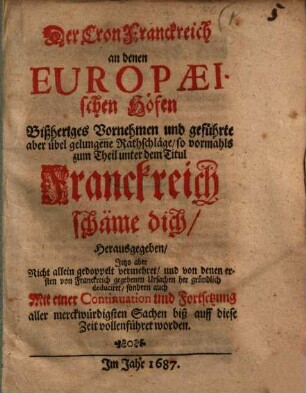 Der Cron Franckreich
an denen
EUROPÆI-
schen Höfen
Bißheriges Vornehmen und geführte
aber übel gelungene Rathschläge/ so vormahls
zum Theil unter dem Titul
Franckreich
schäme dich/
Herausgegeben/
Jetzo aber
Nicht allein gedoppelt vermehret/ und von denen er-
sten von Franckreich gegebenen Ursachen her gründlich
deduciret/ sondern auch
Mit einer Continuation und Fortsetzung
aller merckwürdigsten Sachen biß auff diese
Zeit vollenführet worden.
Im Jahr 1687.